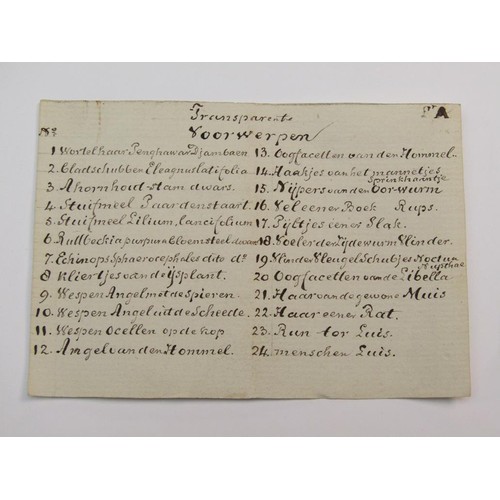 Transparente
Voorwerpen
A
No
1 Wortelhaar Penghawar Djambaen
2. Bladschubben Eleagnus latifolia
3. Ahornhout stam dwars.
4. Stuifmeel Paardenstaart.
5. Stuifmeel Lilium, lancifolium
6. Rudbeckia purpur bloemsteel dwars
7. Echinops Sphaerocephales dito do
8 kliertjes van de ijsplant.
9. Wespen Angel met de spieren.
10. Wespen Angel uit de Scheede.
11. Wespen Ocellen op de kop
12. Angel van den Hommel.
13. Oogfacetten van den Hommel.
14. Haakjes van het mannetjes
Sprinkhaantje
15. Nijpers van den Oorwurm
16. Vel eener Boek Rups.
17. Pijltjes eener Slak.
18. Voeler der Zijdewurm Vlinder.
19. Vlinder Vleugelschubjes Noctua
20. Oogfacetten van de Libella
21. Haar van de gewone Muis
22. Haar eener Rat.
23. Run tor Luis.
24. menschen Luis.